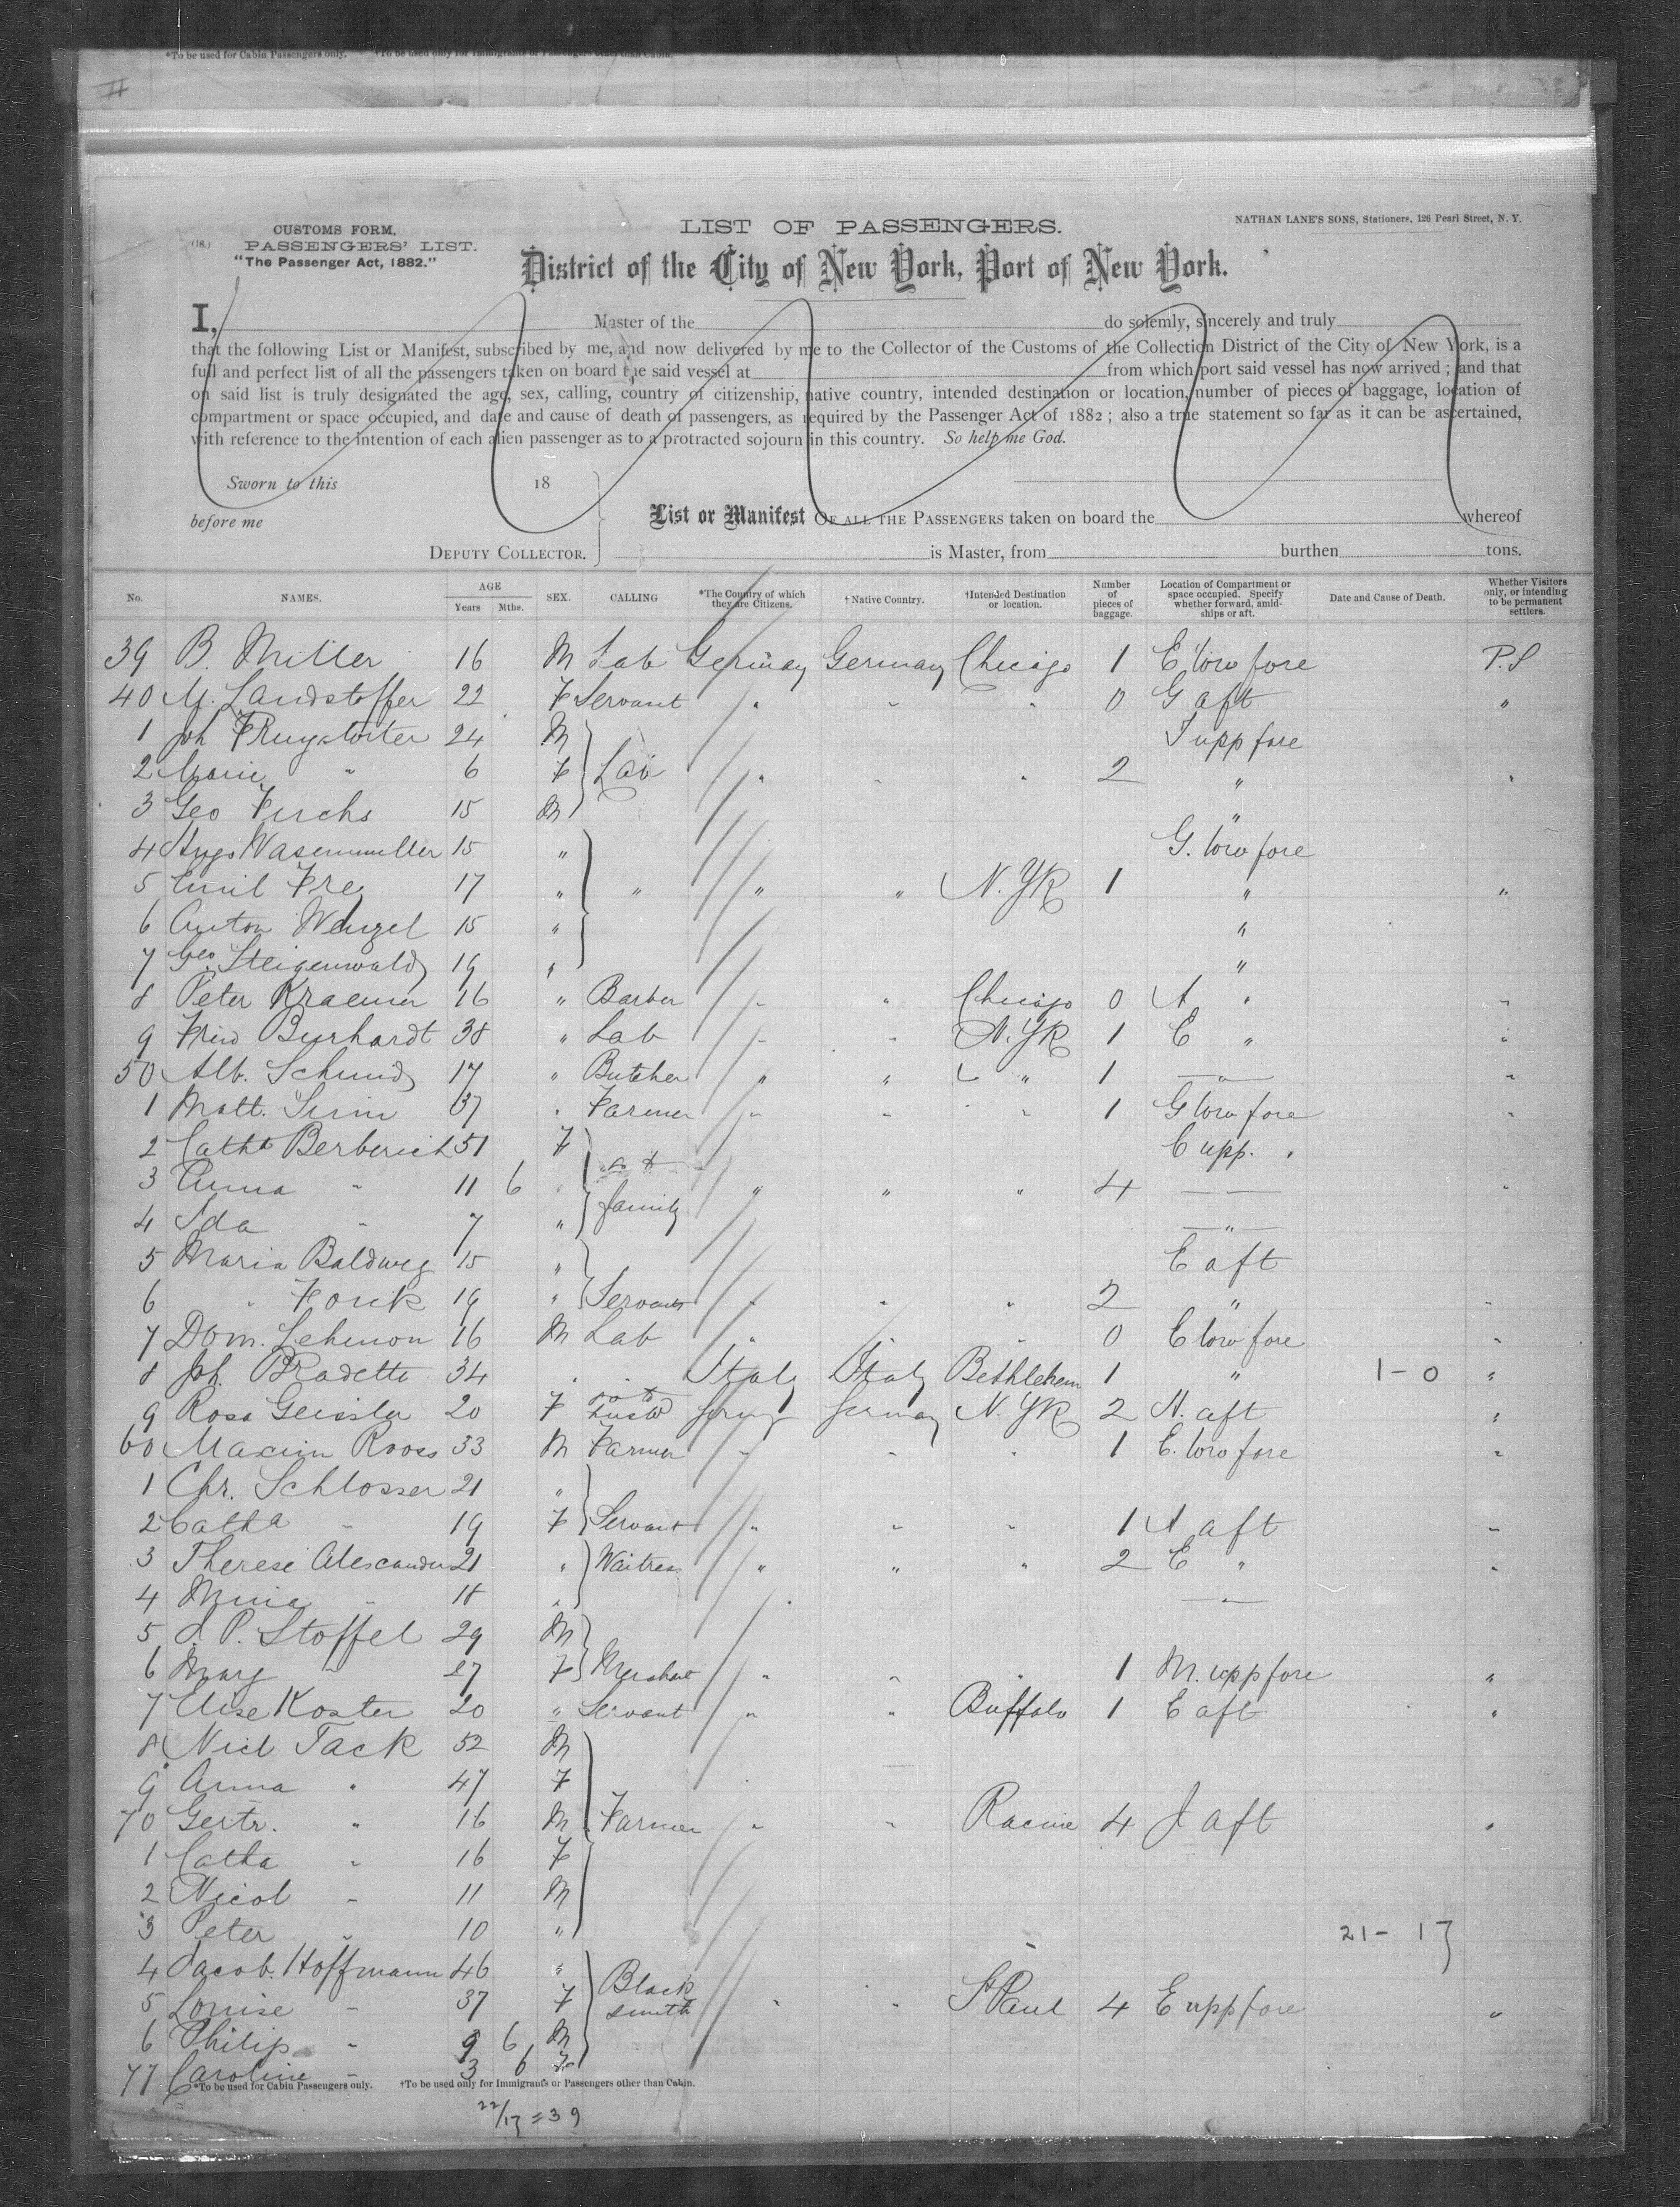 *To be used for Cabin Passengers only. †To be used only for Immigrants or Passengers other than Cabin.
CUSTOMS FORM.
PASSENGERS' LIST.
"The Passenger Act, 1882."
LIST OF PASSENGERS.
NATHAN LANE'S SONS, Stationers, 126 Pearl Street, N. Y.
District of the City of New York, Port of New York.
I, Master of the do solemly, sincerely and truly
that the following List or Manifest, subscribed by me, and now delivered by me to the Collector of the Customs of the Collection District of the City of New York, is a
full and perfect list of all the passengers taken on board the said vessel at from which port said vessel has now arrived ; and that
on said list is truly designated the age, sex, calling, country of citizenship, native country, intended destination or location, number of pieces of baggage, location of
compartment or space occupied, and date and cause of death of passengers, as required by the Passenger Act of 1882 ; also a true statement so far as it can be ascertained,
with reference to the intention of each alien passenger as to a protracted sojourn in this country. So help me God.
Sworn to this 18
before me
List or Manifest OF ALL THE PASSENGERS taken on board the whereof
DEPUTY COLLECTOR. is Master, from burthen tons.
No. NAMES. AGE Years Mths. SEX. CALLING *The Country of which they are Citizens. †Native Country. †Intended Destination or location. Number of pieces of baggage. Location of Compartment or space occupied. Specify whether forward, amidships or aft. Date and Cause of Death. Whether Visitors only, or intending to be permanent settlers.
39 B. Miller 16 M Lab Germany Germany Chicago 1 E low fore P.S
40 M. Landstoffer 22 F Servant " " " 0 G aft "
1 Joh 24 M upp fore
2 Marie " 6 F Lab " " " 2 " "
3 Geo Fuchs 15 M "
4 Hugo Wasenmuller 15 " G. low fore
5 Emil Frey 17 " " " " N. YK 1 " "
6 Anton Wenzel 15 " "
7 Geo Steigenwald 19 " "
8 Peter Kraemer 16 " Barber " " Chicago 0 A " "
9 Burhardt 38 " Lab " " N. YK 1 E " "
50 Alb. Schmid 17 " Butcher " " " 1 " "
1 Matt. 37 " Farmer " " " 1 G low fore "
2 Catha Berberich 51 F E upp. "
3 Anna " 11 6 " family " " " 4 " "
4 Ida " 7 " "
5 Maria Baldweg 15 " E aft
6 " 19 " Servants " " " 2 " "
7 Dom. Lehmon 16 M Lab " " " 0 E low fore "
8 Joh. Bradette 34 " " Italy Italy Bethlehem 1 " 1-0 "
9 Rosa Geissler 20 F Germy Germany N. YK 2 A. aft "
60 Maxim Rooss 33 M Farmer " " " 1 E. low fore "
1 Chr. Schlosser 21 "
2 Catha " 19 F Servant " " " 1 A aft "
3 Therese Alescander 21 " Waitress " " " 2 E " "
4 Mina " 18 " "
5 J. P. Stoffel 29 M
6 Mary " 27 F Merchant " " " 1 M. upp fore "
7 Elise Koster 20 " Servant " " Buffalo 1 E aft "
8 Nicl Tack 52 M
9 Anna " 47 F
70 Gertr. " 16 M Farmer " " Racine 4 J aft "
1 Catha " 16 F
2 Nicol " 11 M
3 Peter " 10 " 21 - 17
4 Jacob Hoffmann 46 "
5 Louise " 37 F Black smith " " St Paul 4 E upp fore "
6 Philip " 9 6 M
77 Caroline " 3 6 F
*To be used for Cabin Passengers only. †To be used only for Immigrants or Passengers other than Cabin.
22/17 = 39